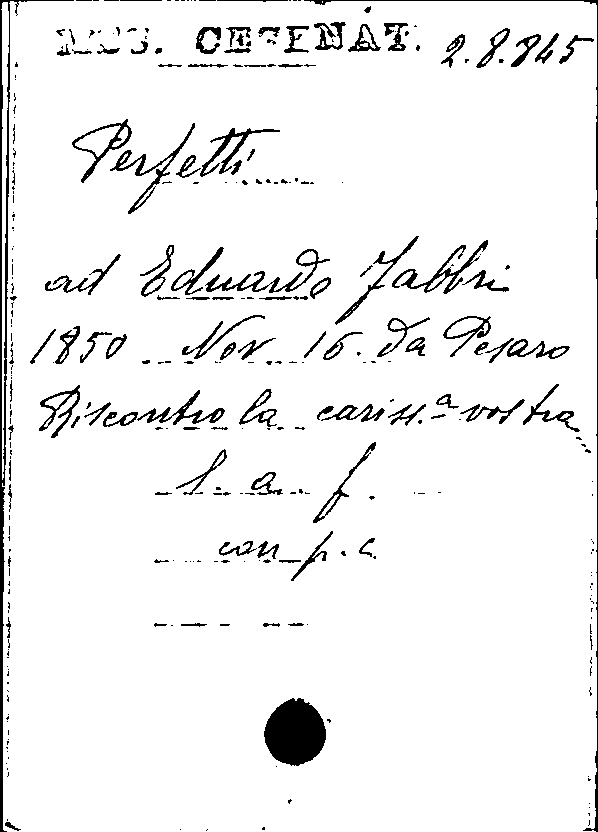 MSS. CESENAT. 2.8.845
Perfetti
ad Eduardo Fabbri
1850 Nov. 16. Da Pesaro
Riscontro la cariss.ª vostra...
l. a. f.
con p. c.